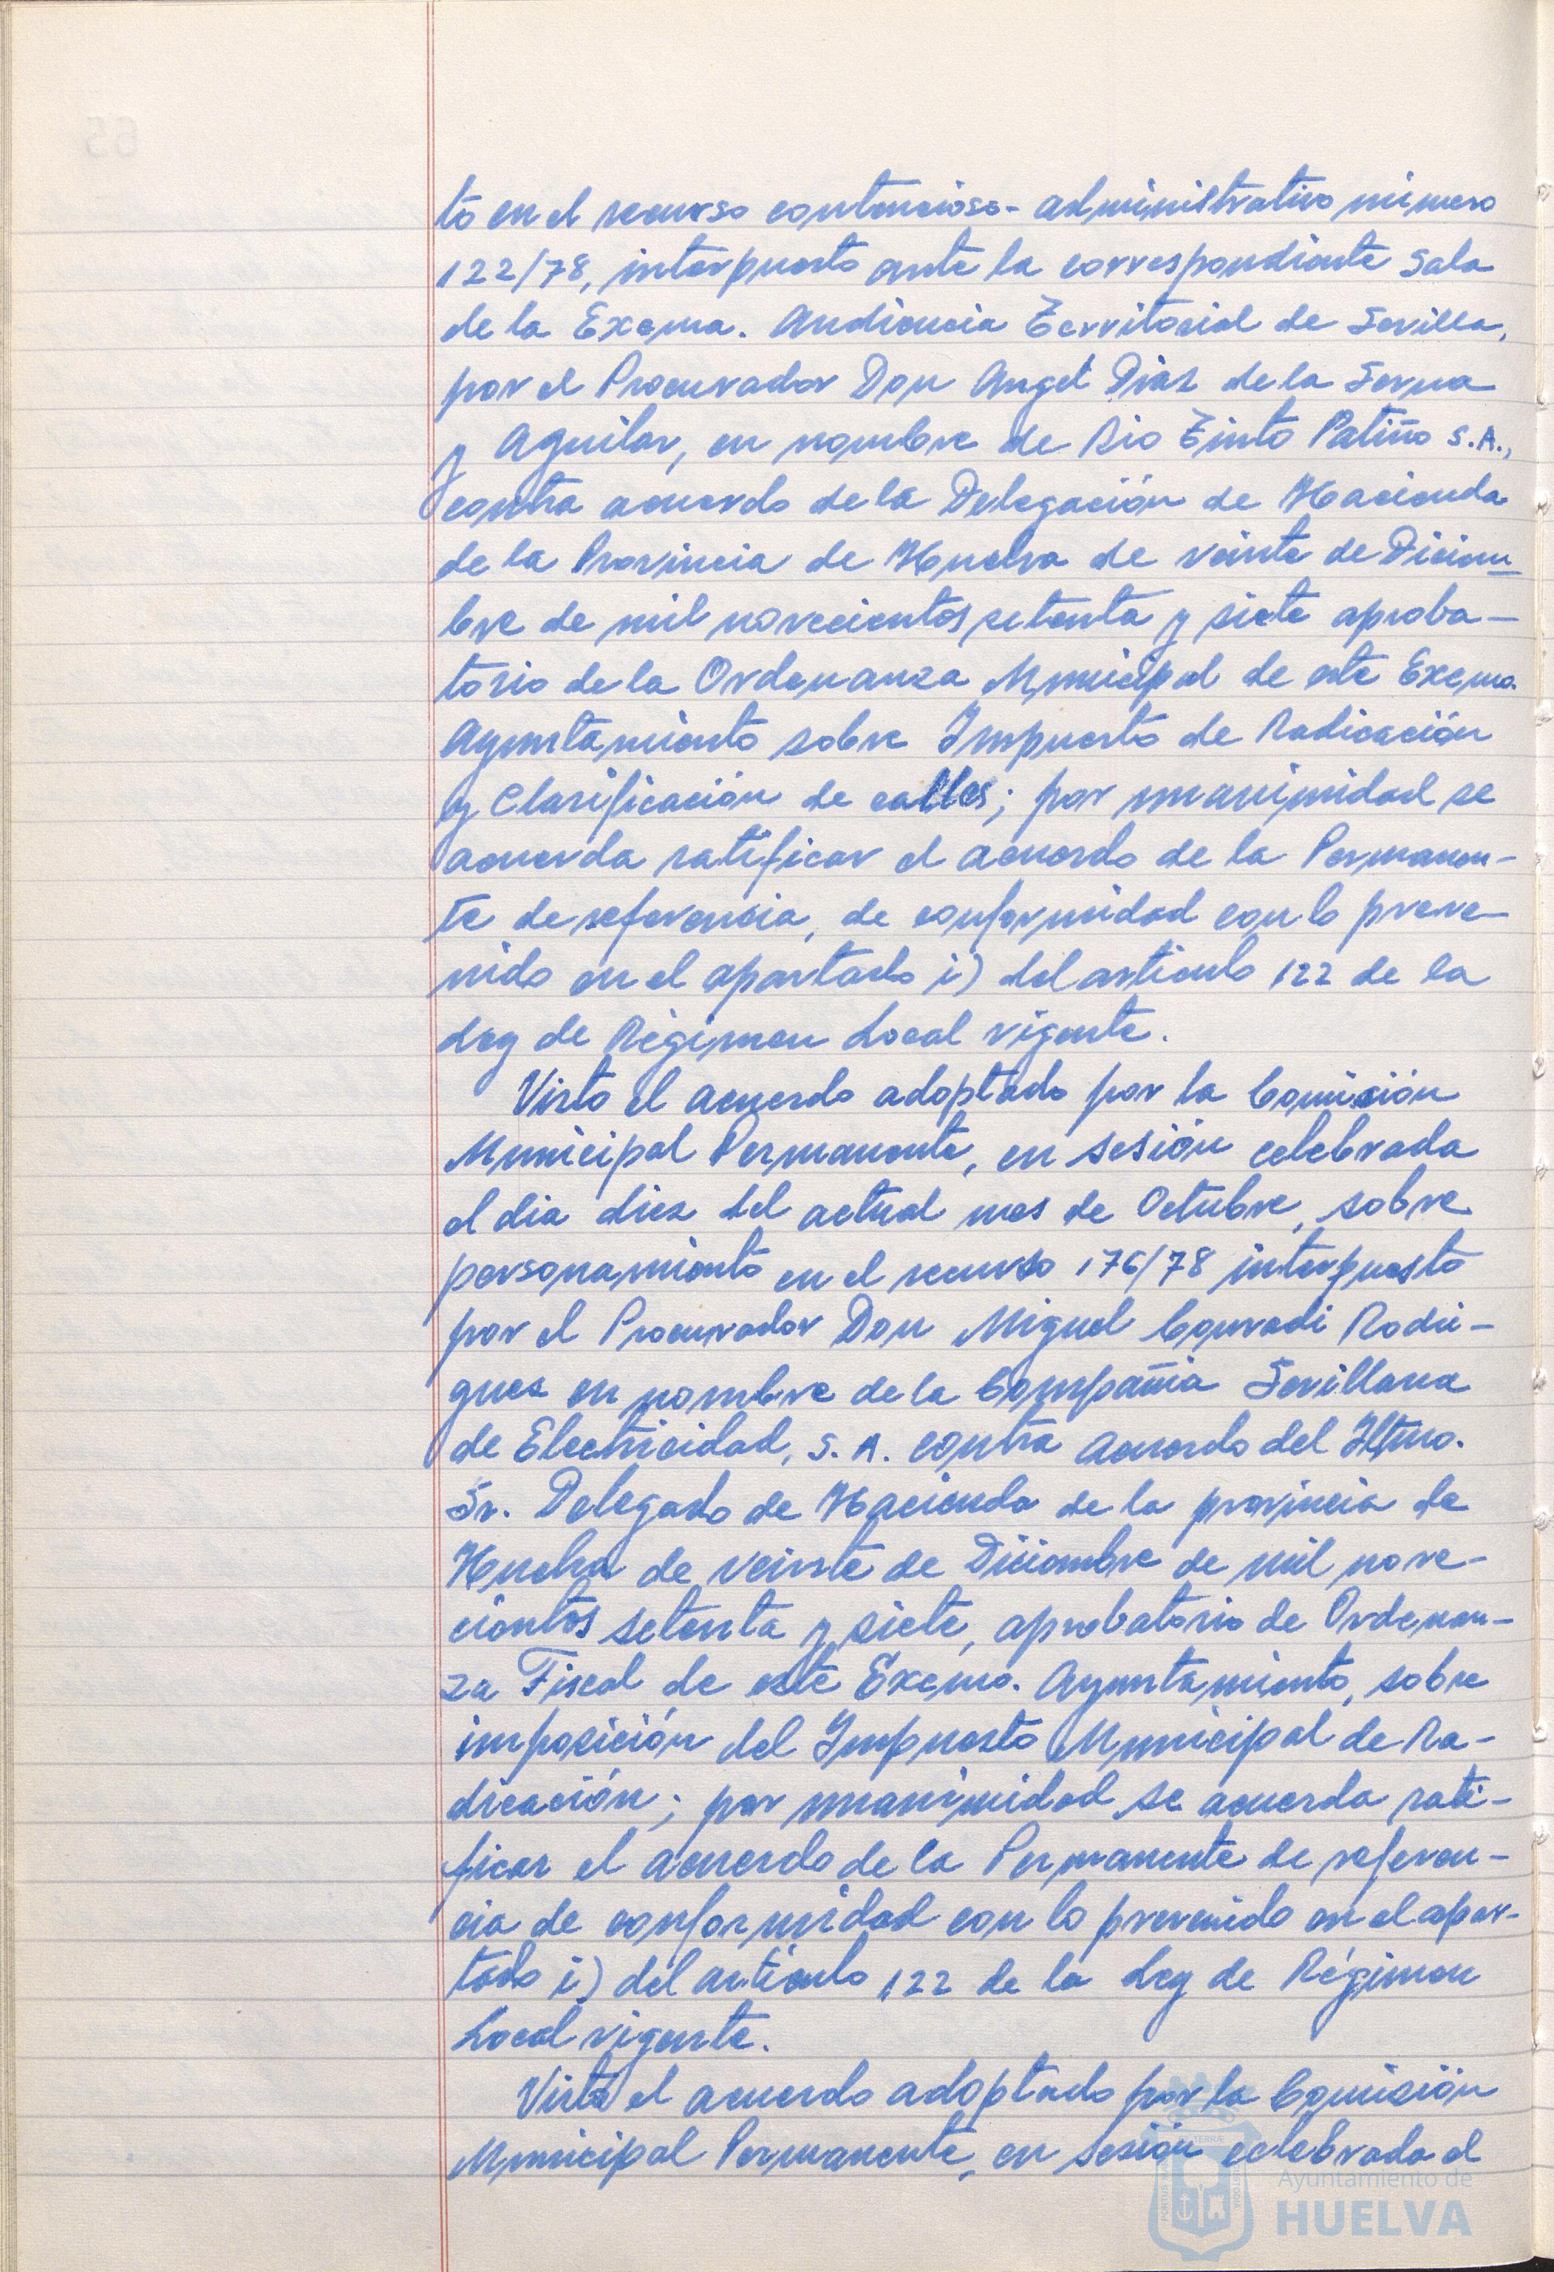 to en el recurso contencioso-administrativo número
122/78, interpuesto ante la correspondiente Sala
de la Excma. Audiencia Territorial de Sevilla,
por el Procurador Don Angel Diaz de la Serna
y Aguilar, en nombre de Rio Tinto Patiño S.A.,
contra acuerdo de la Delegación de Hacienda
de la Provincia de Huelva de veinte de Diciem-
bre de mil novecientos setenta y siete aproba-
torio de la Ordenanza Municipal de este Excmo.
Ayuntamiento sobre Impuesto de Radicación
y Clasificación de calles; por unanimidad se
acuerda ratificar el acuerdo de la Permanen-
te de referencia, de conformidad con lo preve-
nido en el apartado i) del articulo 122 de la
Ley de Régimen Local vigente.
Visto el acuerdo adoptado por la Comisión
Municipal Permanente, en sesión celebrada
el dia diez del actual mes de Octubre, sobre
personamiento en el recurso 176/78 interpuesto
por el Procurador Don Miguel Conradi Rodri-
guez en nombre de la Compañia Sevillana
de Electricidad, S.A. contra acuerdo del Iltmo.
Sr. Delegado de Hacienda de la provincia de
Huelva de veinte de Diciembre de mil nove-
cientos setenta y siete, aprobatorio de Ordenan-
za Fiscal de este Excmo. Ayuntamiento, sobre
imposición del Impuesto Municipal de Ra-
dicación; por unanimidad se acuerda rati-
ficar el acuerdo de la Permanente de referen-
cia de conformidad con lo prevenido en el apar-
tado i) del articulo 122 de la Ley de Régimen
Local vigente.
Visto el acuerdo adoptado por la Comisión
Municipal Permanente, en sesión celebrada el
Ayuntamiento de
HUELVA